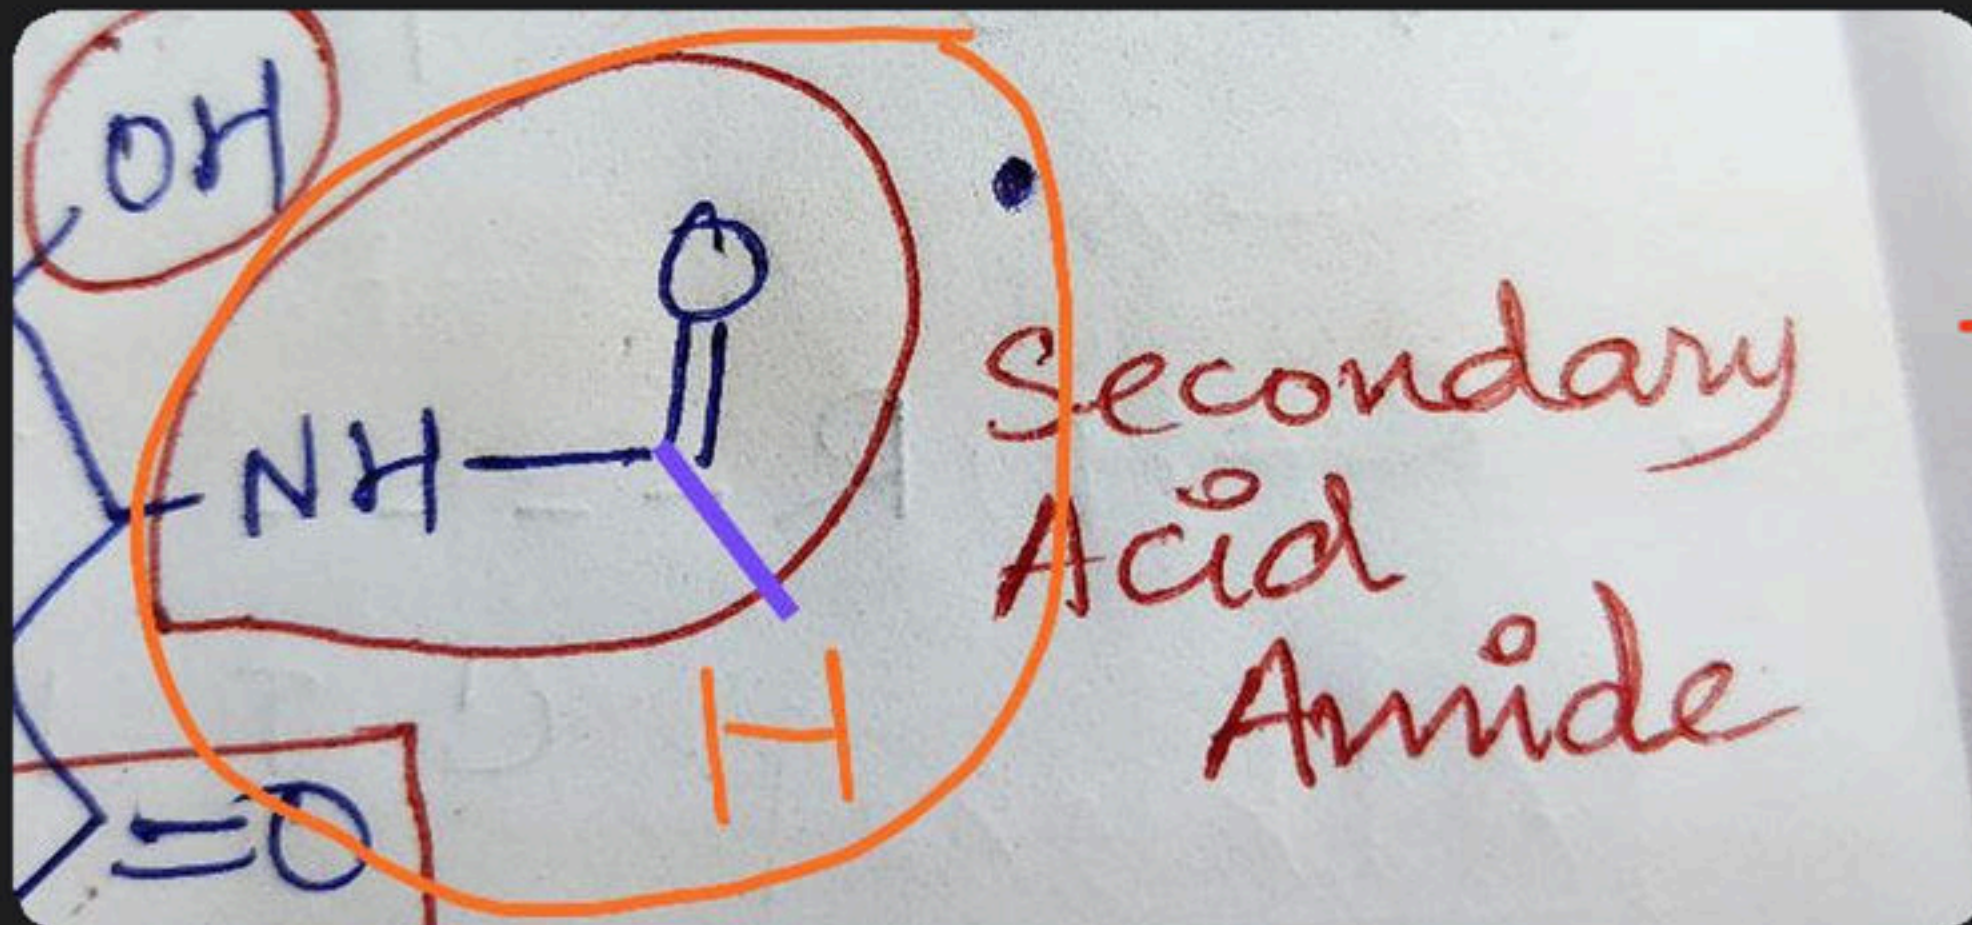 OH
O
NH
Secondary
Acid
Amide
H
=O